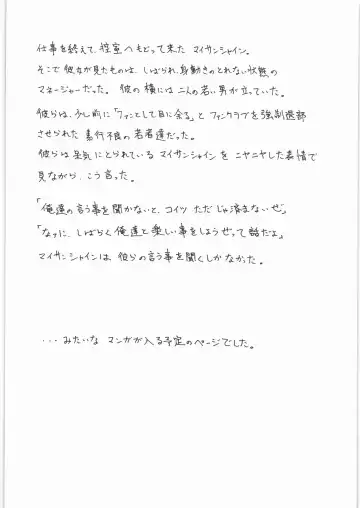 仕事を終えて、控室へもどって来た マイサンシャイン。
そこで彼女が見たものは、しばられ、身動きのとれない状態の
マネージャーだった。 彼の横には 二人の若い男が立っていた。
彼らは、少し前に「ファンとして目に余る」と ファンクラブを強制退部
させられた 素行不良の若者達だった。
彼らは呆気にとられている マイサンシャインを ニヤニヤした表情で
見ながら、こう言った。
「俺達の言う事を聞かないと、コイツ ただじゃ済まないぜ」
「なァに、しばらく俺達と楽しい事をしようぜって話だよ」
マイサンシャインは、彼らの言う事を聞くしかなかった。
・・・みたいな マンガが入る予定のページでした。